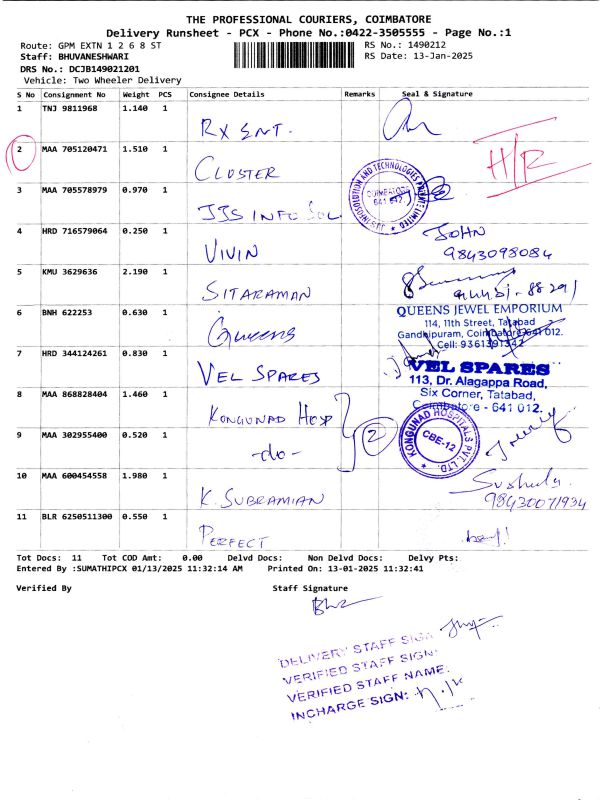 THE PROFESSIONAL COURIERS, COIMBATORE
Delivery Runsheet - PCX - Phone No.:0422-3505555 - Page No.:1
Route: GPM EXTN 1 2 6 8 ST
RS No.: 1490212
Staff: BHUVANESHWARI
RS Date: 13-Jan-2025
DRS No.: DCJB149021201
Vehicle: Two Wheeler Delivery
S No Consignment No Weight PCS Consignee Details Remarks Seal & Signature
1 TNJ 9811968 1.140 1
RX ENT.
2 MAA 705120471 1.510 1
CLUSTER
H/R
3 MAA 705578979 0.970 1
JJS INFO SOL
JJSINFOSOLUTION AND TECHNOLOGIES PRIVATE LIMITED
COIMBATORE
641 012.
4 HRD 716579064 0.250 1
VIVIN
JOHN
9843098084
5 KMU 3629636 2.190 1
SITARAMAN
6 BNH 622253 0.630 1
Queens
QUEENS JEWEL EMPORIUM
114, 11th Street, Tatabad
Gandhipuram, Coimbatore-641 012.
Cell: 9361391342
7 HRD 344124261 0.830 1
VEL SPARES
VEL SPARES
113, Dr. Alagappa Road,
Six Corner, Tatabad,
Coimbatore - 641 012.
8 MAA 868828404 1.460 1
KONGUNAD HOSP
9 MAA 302955400 0.520 1
-do-
2
KONGUNAD HOSPITALS PVT. LTD.
CBE-12
10 MAA 600454558 1.980 1
K. SUBRAMIAN
Sushula
98430071934
11 BLR 6250511300 0.550 1
PERFECT
Tot Docs: 11 Tot COD Amt: 0.00 Delvd Docs: Non Delvd Docs: Delvy Pts:
Entered By :SUMATHIPCX 01/13/2025 11:32:14 AM Printed On: 13-01-2025 11:32:41
Verified By Staff Signature
DELIVERY STAFF SIGN
VERIFIED STAFF SIGN:
VERIFIED STAFF NAME:
INCHARGE SIGN: